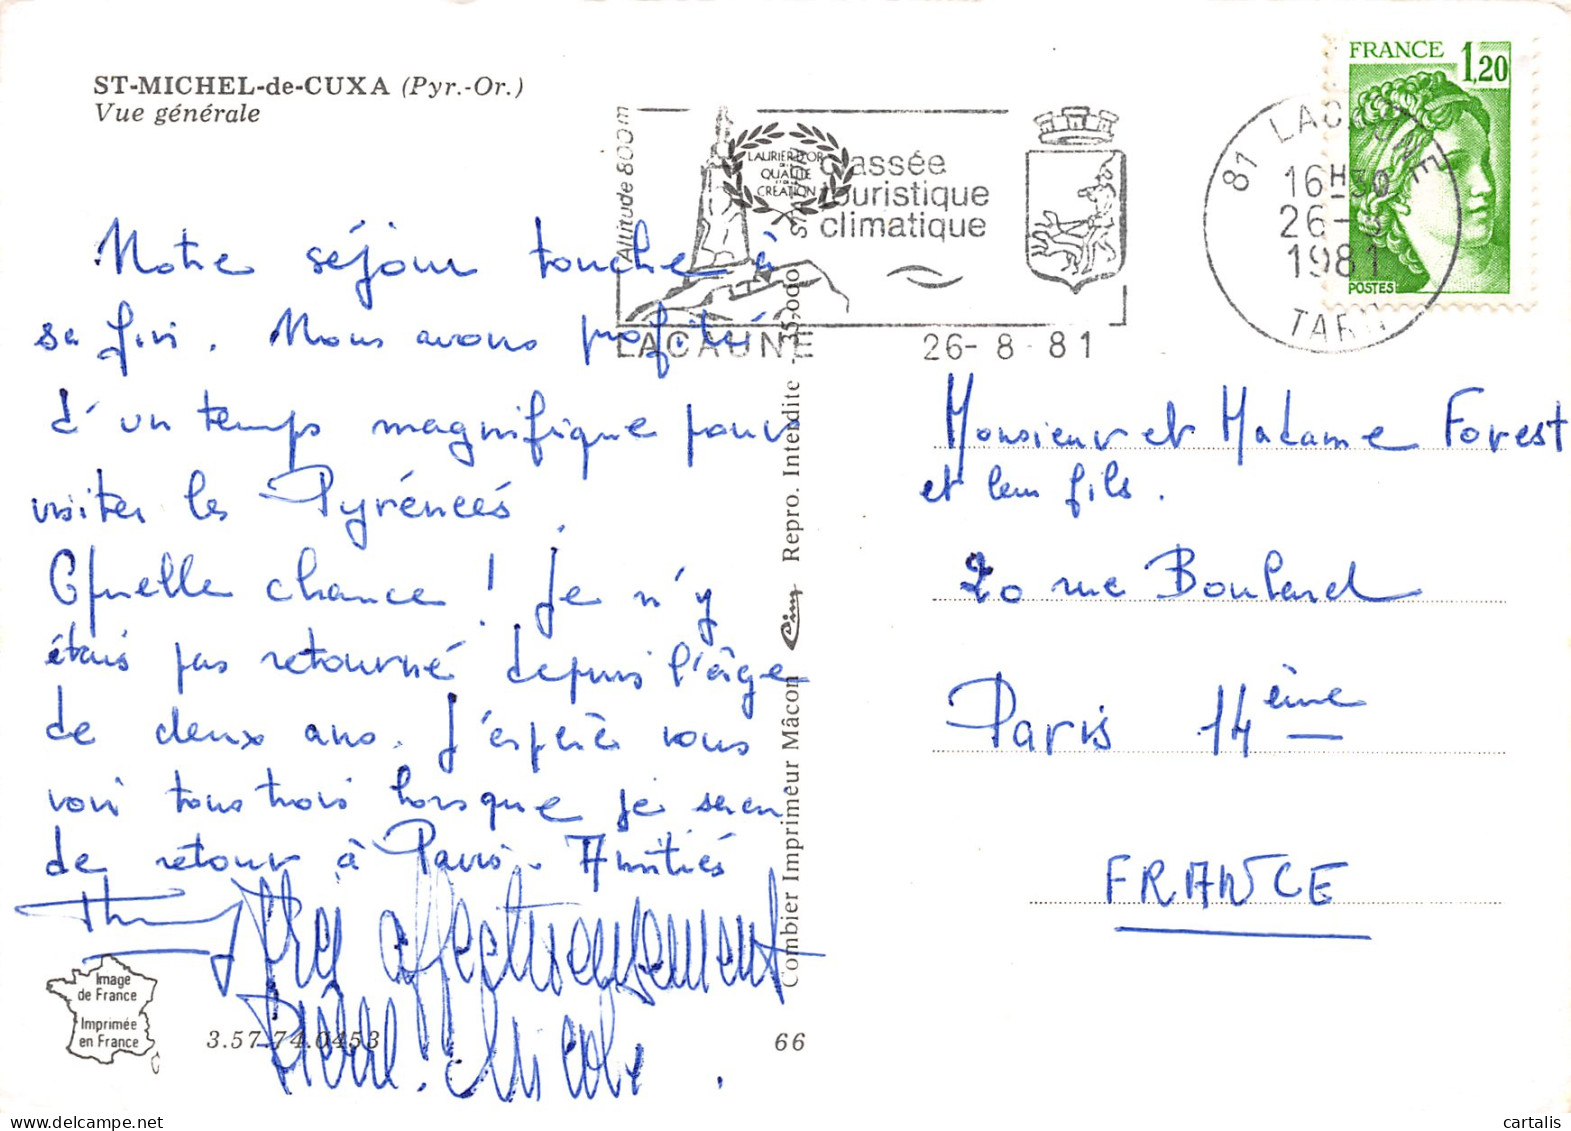 ST-MICHEL-de-CUXA (Pyr.-Or.)
Vue générale
Notre séjour touche à
sa fin. Nous avons profité
d'un temps magnifique pour
visiter les Pyrénées
Quelle chance ! Je n'y
étais pas retourné depuis l'âge
de deux ans. J'espère vous
voir tous trois lorsque je serai
de retour à Paris. Amitiés
Très affectueusement
Pierre. Nicole.
Image
de France
Imprimée
en France
3.57.74.0453
66
Combier Imprimeur Mâcon Cim Repro. Interdite - 35,000
LAURIER D'OR
QUALITÉ
CRÉATION
Altitude 800m
Station
classée
touristique
climatique
LACAUNE
26-8-81
81 LACAUNE
16H30
26-8
1981
TARN
FRANCE
1,20
POSTES
Monsieur et Madame Forest
et leur fils.
20 rue Boulard
Paris 14ème
FRANCE
cartalis